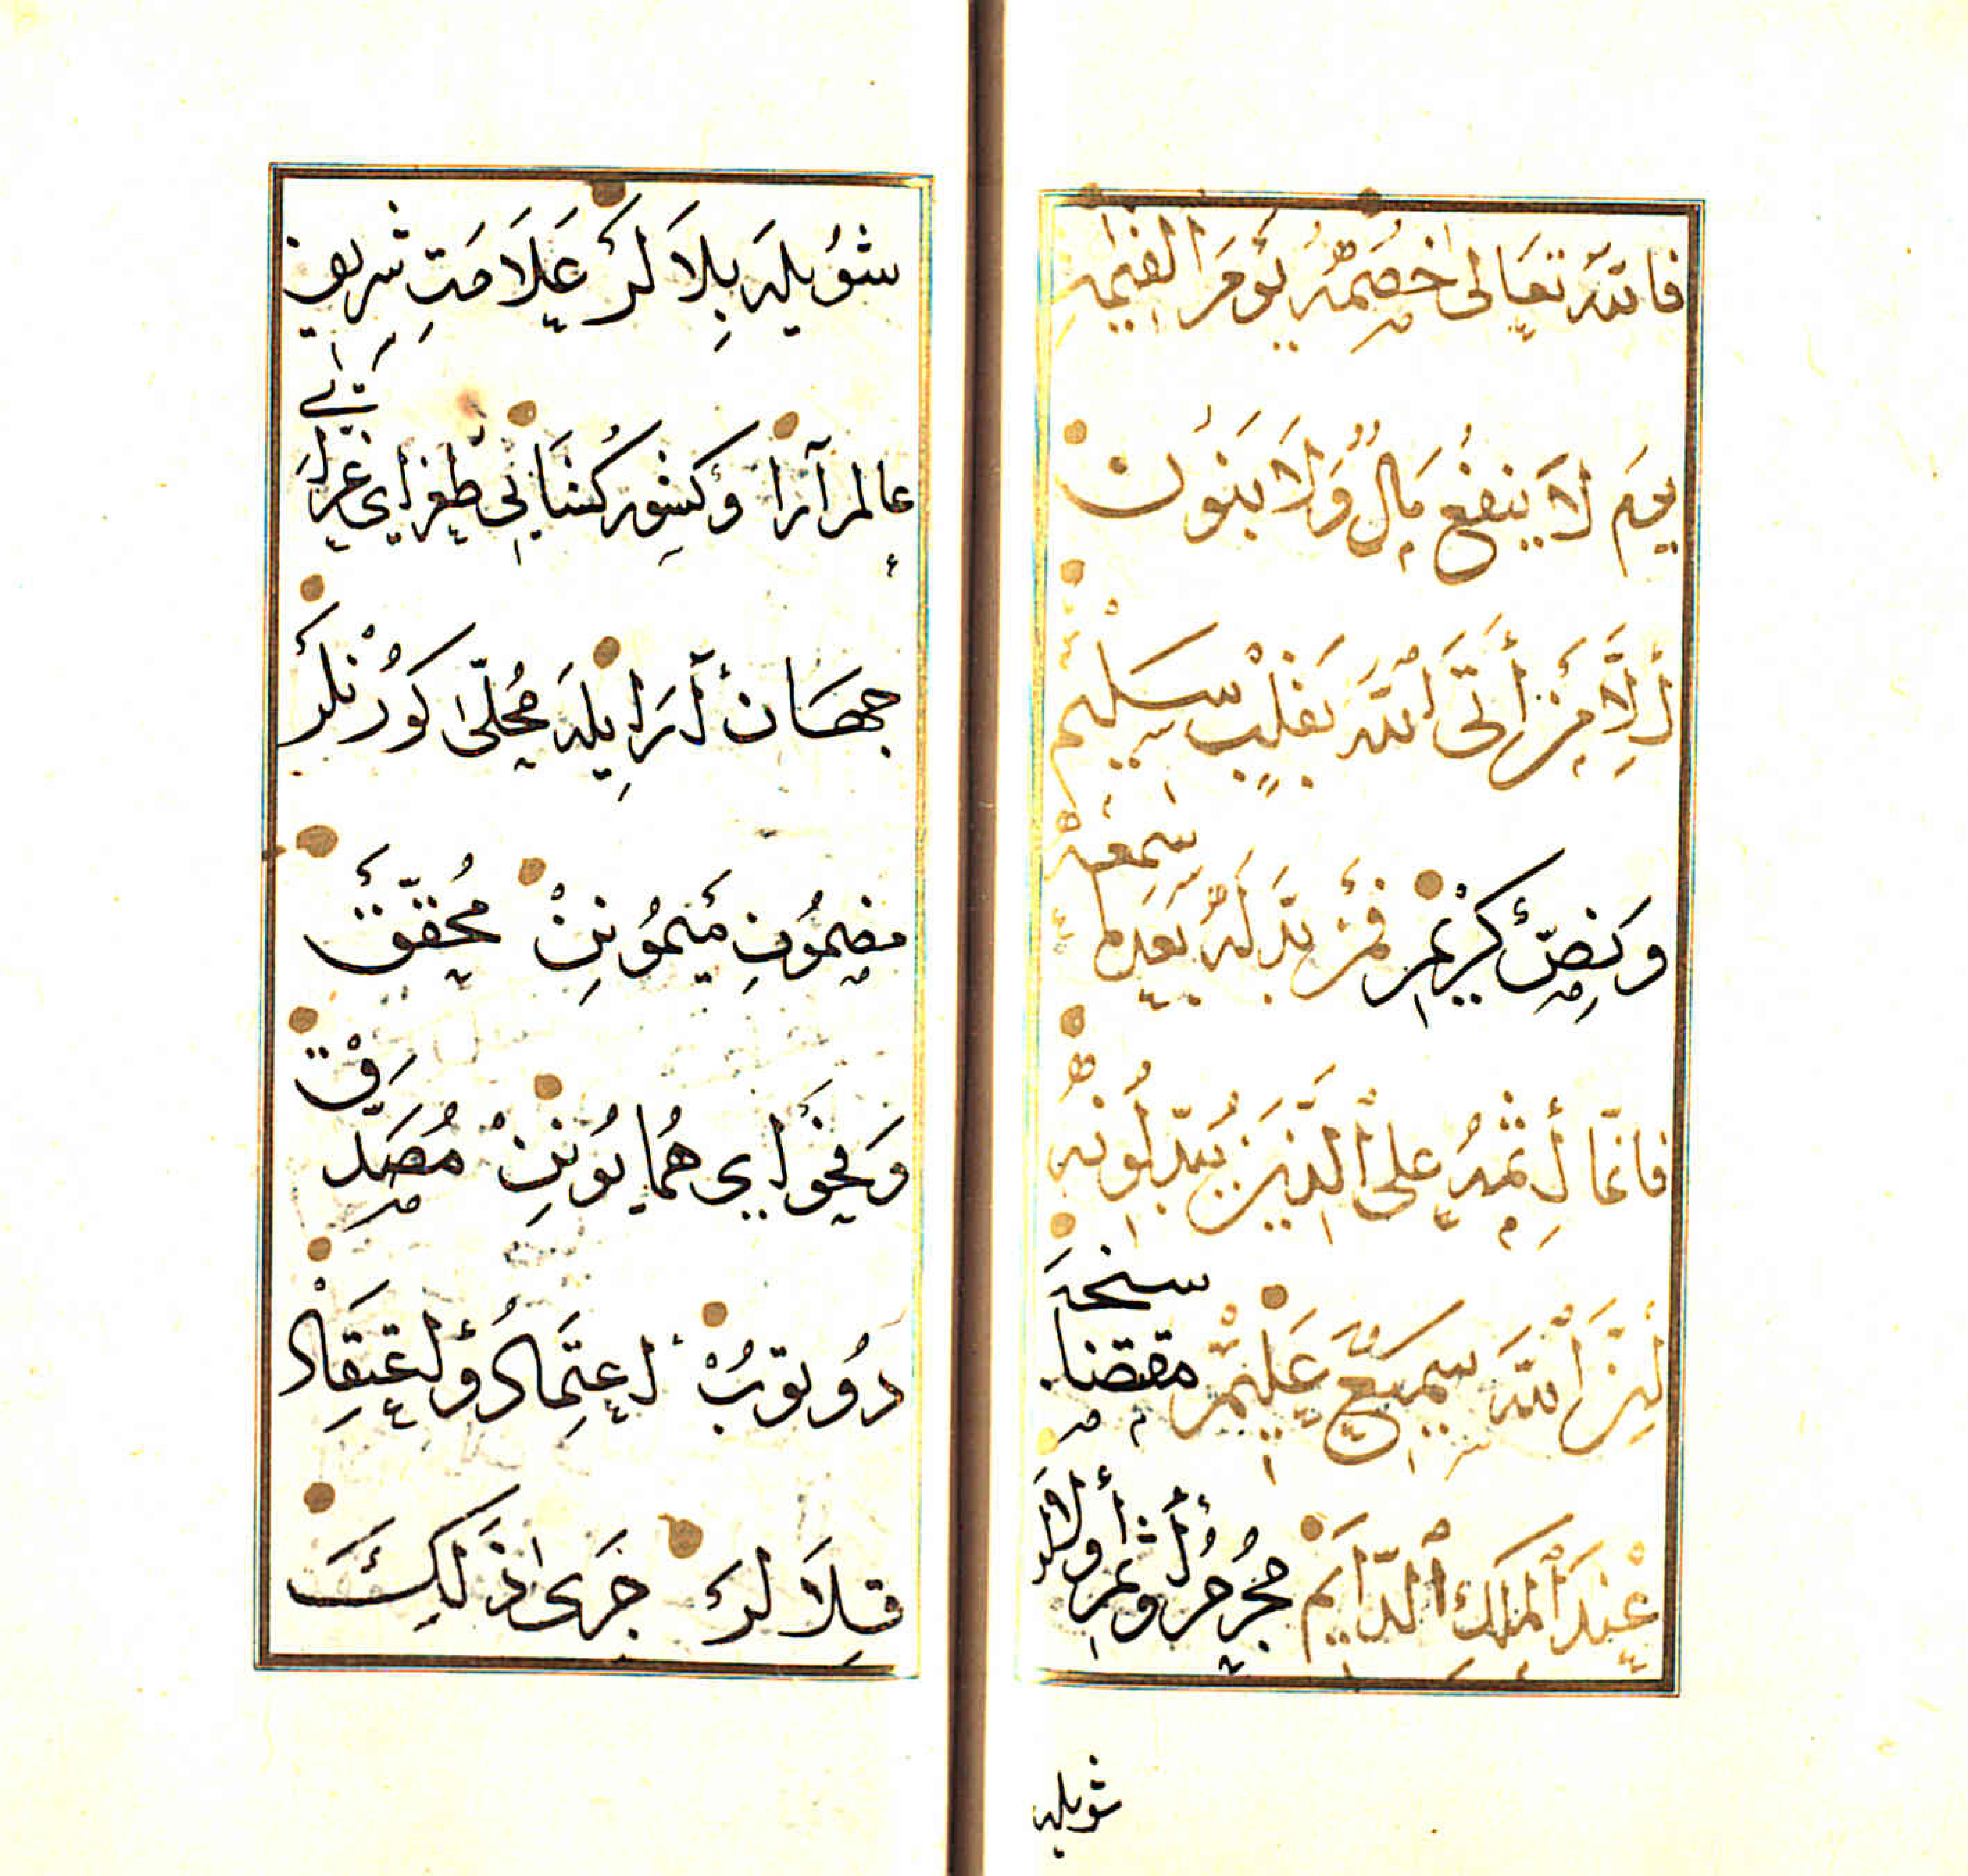 فالله تعالى خصمه يوم القيمة
يوم لا ينفع مال ولا بنون
إلا من أتى الله بقلب سليم
ونص كريم فمن بدله بعد ما سمعه
فانما إثمه على الذين يبدلونه
إن الله سميع عليم مقتضا سنجه
عند الملك الدايم مجرم وأثم أولالر
شويله
شويله بلالر علامت شريف
عالم آرا وكشور كشاني طغراي غراي
جهان آرا ايله محلى كورنلر
مضمون ميمونن محقق
وفحواي همايونن مصدق
دويوب اعتماد واعتقاد
قلالر جرى ذلك